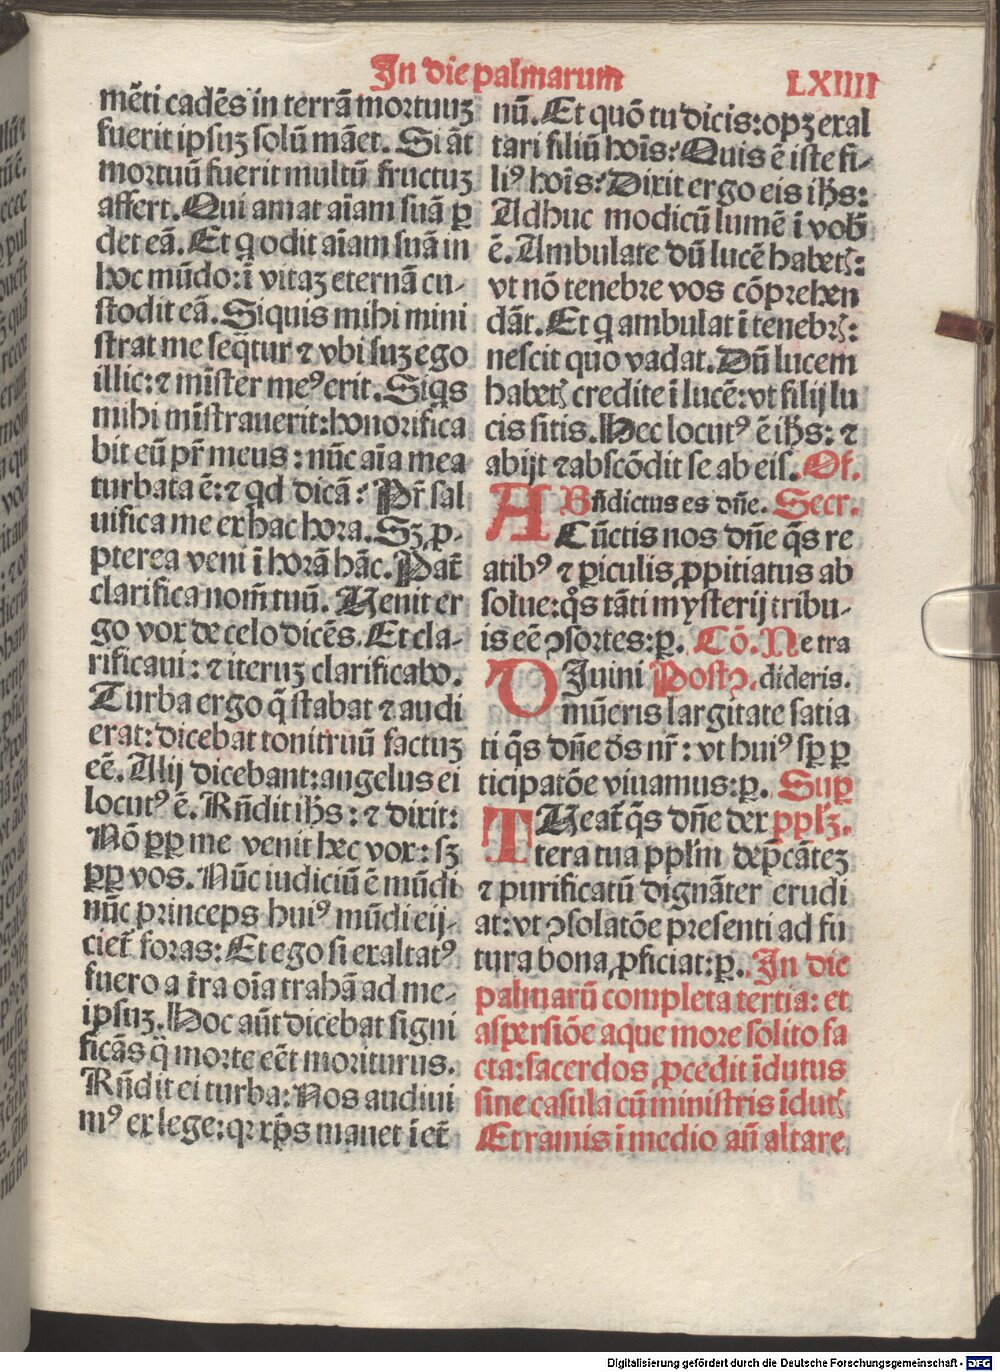 In die palmarum LXIIII
mēti cadēs in terrā mortuuꝫ
fuerit ipsuꝫ solū māet. Si āt
mortuū fuerit multū fructuꝫ
affert. Qui amat aīam suā ꝑ
det eā. Et q odit aīam suā in
hoc mūdo: ī vitaꝫ eternā cu-
stodit eā. Siquis mihi mini
strat me seq̄tur ⁊ vbi suꝫ ego
illic: ⁊ mīster meꝰ erit. Siqs
mihi mīstrauerit: honorifica
bit eū pr̄ meus: nūc aīa mea
turbata ē: ⁊ qd dicā? Pr̄ sal
uifica me ex hac hora. Sꝫ ꝓ-
pterea veni ī horā hāc. Pat̄
clarifica nom̄ tuū. Uenit er
go vox de celo dicēs. Et cla-
rificaui: ⁊ iteruꝫ clarificabo.
Turba ergo q̄ stabat ⁊ audi
erat: dicebat tonitruū factuꝫ
eē. Alij dicebant: angelus ei
locutꝰ ē. Rn̄dit ih̄s: ⁊ dixit:
Nō ꝓꝑ me venit hec vox: sꝫ
ꝓꝑ vos. Nūc iudiciū ē mūdi
nūc princeps huiꝰ mūdi eij-
ciet̄ foras: Et ego si exaltatꝰ
fuero a t̄ra oīa trahā ad me-
ipsuꝫ. Hoc aūt dicebat signi
ficās q̄ morte eēt moriturus.
Rn̄dit ei turba: Nos audiui
mꝰ ex lege: qꝛ xp̄s manet ī et̄
nū. Et quō tu dicis: opꝫ exal
tari filiū hoīs? Quis ē iste fi-
liꝰ hoīs? Dixit ergo eis ih̄s:
Adhuc modicū lumē ī vob̄
ē. Ambulate dū lucē habetꝭ:
vt nō tenebre vos cōprehen
dāt. Et q ambulat ī tenebꝛꝭ:
nescit quo vadat. Dū lucem
habetꝭ credite ī lucē: vt filij lu
cis sitis. Hec locutꝰ ē ih̄s: ⁊
abijt ⁊ abscōdit se ab eis. Of.
A Bn̄dictus es dn̄e. Secr.
Cūctis nos dn̄e q̄s re
atibꝰ ⁊ ꝑiculis ꝓpitiatus ab
solue: qͦs tāti mysterij tribu-
is eē ꝯsortes: ꝑ. Cō. Ne tra
D Iuini Postꝯ. dideris.
mūeris largitate satia
ti q̄s dn̄e ds̄ nr̄: vt huiꝰ sꝑ ꝑ
ticipatōe viuamus: ꝑ. Suꝑ
T Ueat̄ q̄s dn̄e dex pplꝫ.
tera tua ppl̄m dep̄cāteꝫ
⁊ purificatū dignāter erudi
at: vt ꝯsolatōe presenti ad fu
tura bona ꝓficiat: ꝑ. In die
palmarū completa tertia: et
aspersiōe aque more solito fa
cta: sacerdos ꝓcedit īdutus
sine casula cū ministris īdutꝭ
Et ramis ī medio aū altare
Digitalisierung gefördert durch die Deutsche Forschungsgemeinschaft - DFG